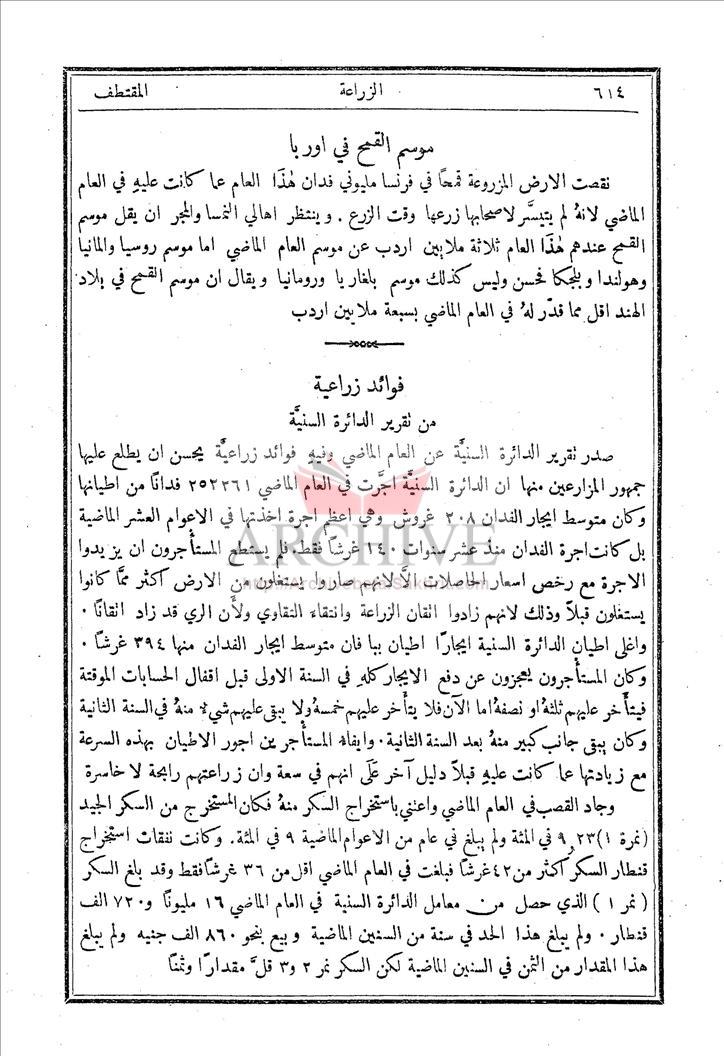 ٦١٤ الزراعة المقتطف
موسم القمح في اوربا
نقصت الارض المزروعة قمحًا في فرنسا مليوني فدان هٰذا العام عما كانت عليهِ في العام
الماضي لانهُ لم يتيسَّر لاصحابها زرعها وقت الزرع . وينتظر اهالي النمسا والمجر ان يقل موسم
القمح عندهم هٰذا العام ثلاثة ملايين اردب عن موسم العام الماضي اما موسم روسيا والمانيا
وهولندا وبلجكا فحسن وليس كذلك موسم بلغاريا ورومانيا ويقال ان موسم القمح في بلاد
الهند اقل مما قدّر لهُ في العام الماضي بسبعة ملايين اردب
فوائد زراعية
من تقرير الدائرة السنيَّة
صدر تقرير الدائرة السنيَّة عن العام الماضي وفيهِ فوائد زراعيَّة يحسن ان يطلع عليها
جمهور المزارعين منها ان الدائرة السنيَّة اجَّرت في العام الماضي ٢٥٢٢٦١ فدانًا من اطيانها
وكان متوسط ايجار الفدان ٢٠٨ غروش وهي اعظم اجرة اخذتها في الاعوام العشر الماضية
بل كانت اجرة الفدان منذ عشر سنوات ١٤٠ غرشًا فقط. فلم يستطع المستأجرون ان يزيدوا
الاجرة مع رخص اسعار الحاصلات الَّا لانهم صاروا يستغلون من الارض اكثر ممَّا كانوا
يستغلون قبلاً وذلك لانهم زادوا اتقان الزراعة وانتقاء التقاوي ولأن الري قد زاد اتقانًا .
واغلى اطيان الدائرة السنية ايجارًا اطيان ببا فان متوسط ايجار الفدان منها ٣٩٤ غرشًا .
وكان المستأجرون يعجزون عن دفع الايجار كلهِ في السنة الاولى قبل اقفال الحسابات الموقتة
فيتأخر عليهم ثلثهُ او نصفهُ اما الآن فلا يتأخر عليهم خمسهُ ولا يبقى عليهم شيء منهُ في السنة الثانية
وكان يبقى جانب كبير منهُ بعد السنة الثانية . وايفاء المستأجرين اجور الاطيان بهذه السرعة
مع زيادتها عما كانت عليهِ قبلاً دليل آخر عَلَى انهم في سعة وان زراعتهم رابحة لا خاسرة
وجاد القصب في العام الماضي واعتني باستخراج السكر منهُ فكان المستخرج من السكر الجيد
(نمرة ١) ٩٫٢٣ في المئة ولم يبلغ في عام من الاعوام الماضية ٩ في المئة. وكانت نفقات استخراج
قنطار السكر اكثر من ٤٢ غرشًا فبلغت في العام الماضي اقل من ٣٦ غرشًا فقط وقد بلغ السكر
( نمر ١ ) الذي حصل من معامل الدائرة السنية في العام الماضي ١٦ مليونًا و٧٢٠ الف
قنطار . ولم يبلغ هذا الحد في سنة من السنين الماضية وبيع بنحو ٨٦٠ الف جنيه ولم يبلغ
هذا المقدار من الثمن في السنين الماضية لكن السكر نمر ٢ و٣ قلَّ مقدارًا وثمنًا
ARCHIVE